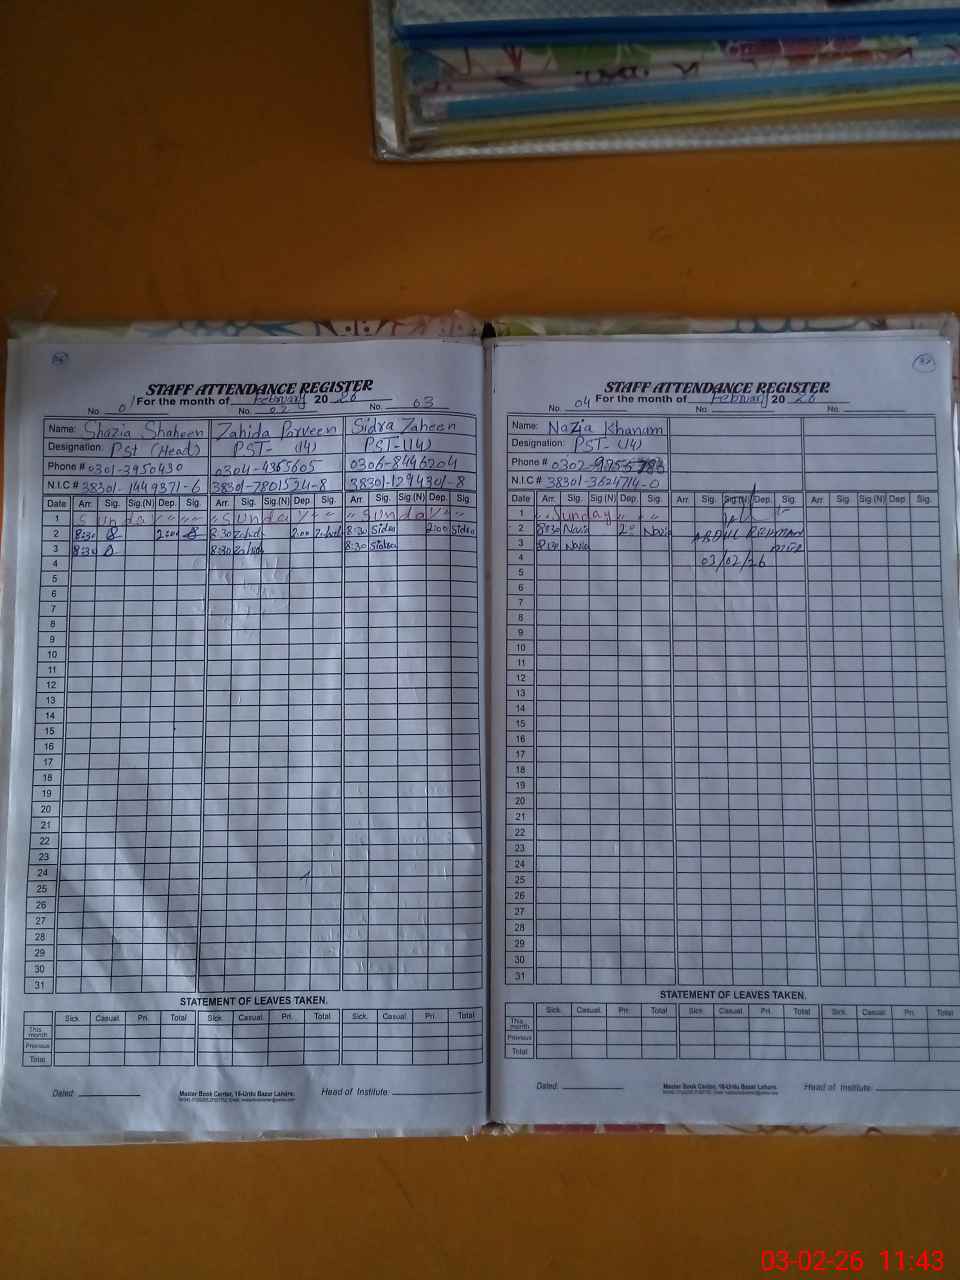 STAFF ATTENDANCE REGISTER
For the month of February 20 26
No. 01 No. 02 No. 03
Name: Shazia Shaheen Zahida Parveen Sidra Zaheen
Designation: Pst (Head) PST- (14) PST-(14)
Phone # 0301-3950430 0304-4365605 0306-8446204
N.I.C # 38301-1449371-6 38301-7801534-8 38301-1294301-8
Date Arr. Sig. Sig.(N) Dep. Sig. Arr. Sig. Sig.(N) Dep Sig. Arr. Sig. Sig.(N) Dep. Sig.
1 Sunday Sunday Sunday
2 8:30 2:00 8:30 Zahida 2:00 Zahida 8:30 Sidra 2:00 Sidra
3 8:30 8:30 Zahida 8:30 Sidra
4
5
6
7
8
9
10
11
12
13
14
15
16
17
18
19
20
21
22
23
24
25
26
27
28
29
30
31
STATEMENT OF LEAVES TAKEN.
Sick. Casual. Pri. Total Sick. Casual. Pri. Total Sick. Casual. Pri. Total
This month
Previous
Total
Dated: Master Book Center, 16-Urdu Bazar Lahore. Head of Institute:
STAFF ATTENDANCE REGISTER
For the month of February 20 26
No. 04 No. No.
Name: Nazia Khanam
Designation: PST-(14)
Phone # 0302-9756786
N.I.C # 38301-3624714-0
Date Arr. Sig. Sig.(N) Dep. Sig. Arr. Sig. Sig.(N) Dep. Sig. Arr. Sig. Sig.(N) Dep. Sig.
1 Sunday
2 8:30 Nazia Nazia ABDUL REHMAN
3 8:30 Nazia
4 03/02/26
5
6
7
8
9
10
11
12
13
14
15
16
17
18
19
20
21
22
23
24
25
26
27
28
29
30
31
STATEMENT OF LEAVES TAKEN.
Sick. Casual. Pri. Total Sick. Casual. Pri. Total Sick. Casual. Pri. Total
This month
Previous
Total
Dated: Master Book Center, 16-Urdu Bazar Lahore. Head of Institute:
03-02-26 11:43